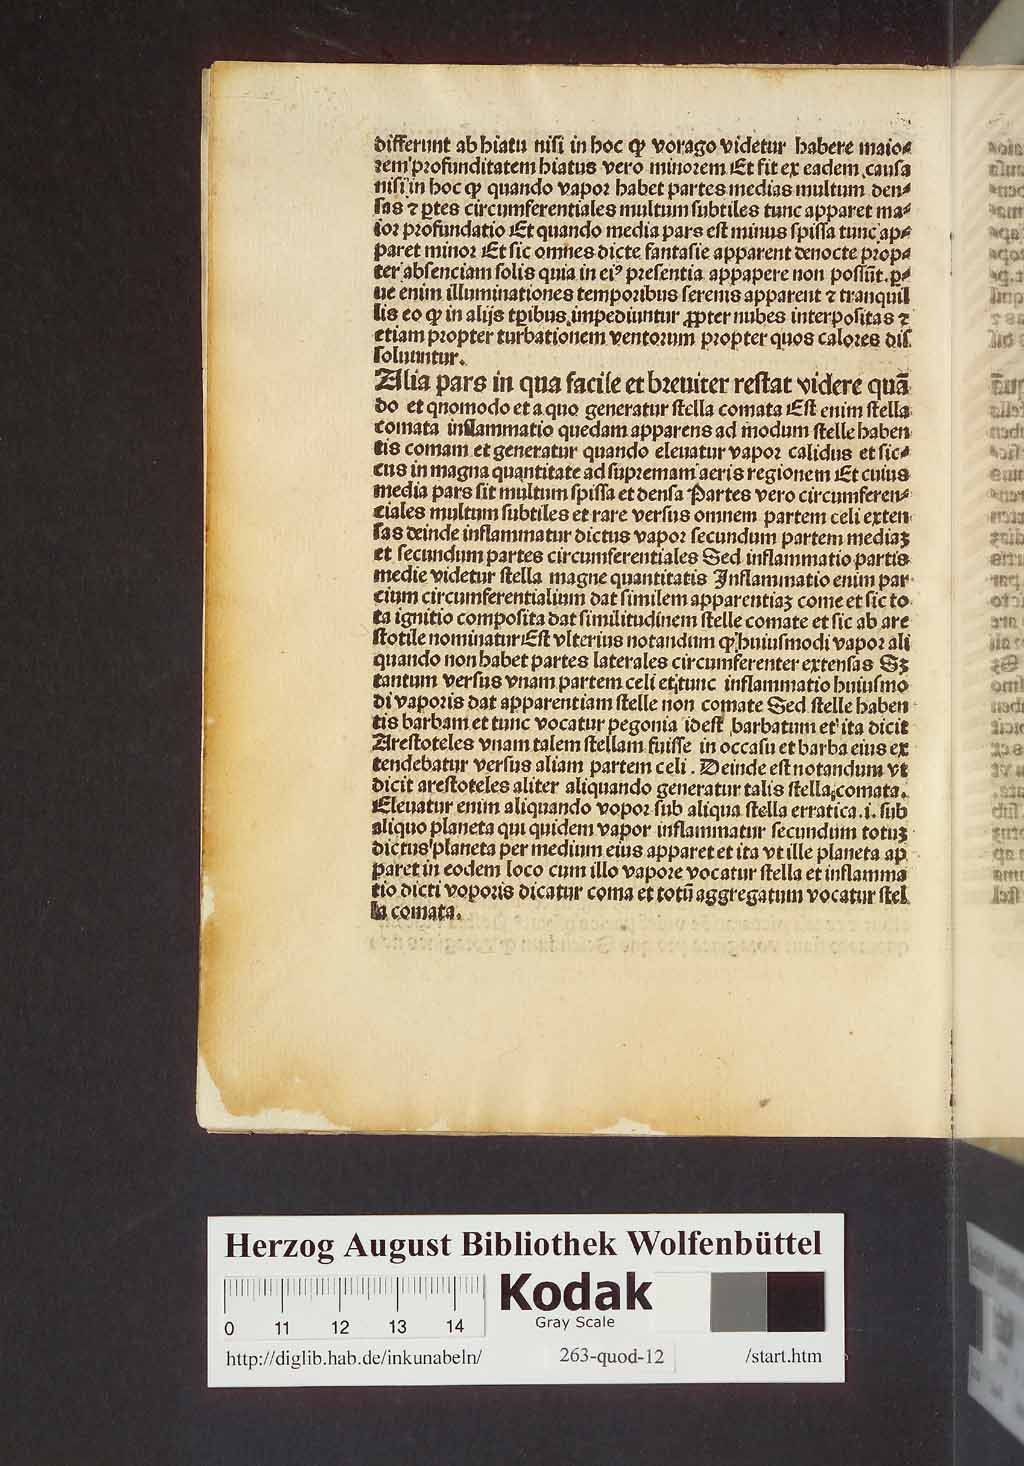 differunt ab hiatu nisi in hoc ꝙ vorago videtur habere maio⸗
rem profunditatem hiatus vero minorem Et fit ex eadem causa
nisi in hoc ꝙ quando vapor habet partes medias multum den⸗
sas ⁊ ꝑtes circumferentiales multum subtiles tunc apparet ma⸗
ior profundatio Et quando media pars est minus spissa tunc ap⸗
paret minor Et sic omnes dicte fantasie apparent denocte prop⸗
ter absenciam solis quia in eiꝰ presentia appapere non possūt. ꝑ⸗
ue enim illuminationes temporibus serenis apparent ⁊ tranquil
lis eo ꝙ in alijs tꝑibus impediuntur ꝓpter nubes interpositas ⁊
etiam propter turbationem ventorum propter quos calores dis
soluuntur.
Alia pars in qua facile et breuiter restat videre quā
do et qnomodo et a quo generatur stella comata Est enim stella
comata inflammatio quedam apparens ad modum stelle haben
tis comam et generatur quando eleuatur vapor calidus et sic⸗
cus in magna quantitate ad supremam aeris regionem Et cuius
media pars sit multum spissa et densa Partes vero circumferen⸗
ciales multum subtiles et rare versus omnem partem celi exten
sas deinde inflammatur dictus vapor secundum partem mediaꝫ
et secundum partes circumferentiales Sed inflammatio partis
medie videtur stella magne quantitatis Inflammatio enim par
cium circumferentialium dat similem apparentiaꝫ come et sic to
ta ignitio composita dat similitudinem stelle comate et sic ab are
stotile nominatur Est vlterius notandum ꝙ huiusmodi vapor ali
quando non habet partes laterales circumferenter extensas Sꝫ
tantum versus vnam partem celi et tunc inflammatio huiusmo
di vaporis dat apparentiam stelle non comate Sed stelle haben
tis barbam et tunc vocatur pegonia idest barbatum et ita dicit
Arestoteles vnam talem stellam fuisse in occasu et barba eius ex
tendebatur versus aliam partem celi. Deinde est notandum vt
dicit arestoteles aliter aliquando generatur talis stella comata.
Eleuatur enim aliquando vopor sub aliqua stella erratica .i. sub
aliquo planeta qui quidem vapor inflammatur secundum totuꝫ
dictus planeta per medium eius apparet et ita vt ille planeta ap
paret in eodem loco cum illo vapore vocatur stella et inflamma
tio dicti voporis dicatur coma et totū aggregatum vocatur stel
la comata.
Herzog August Bibliothek Wolfenbüttel
Kodak
Gray Scale
0 11 12 13 14
http://diglib.hab.de/inkunabeln/ 263-quod-12 /start.htm